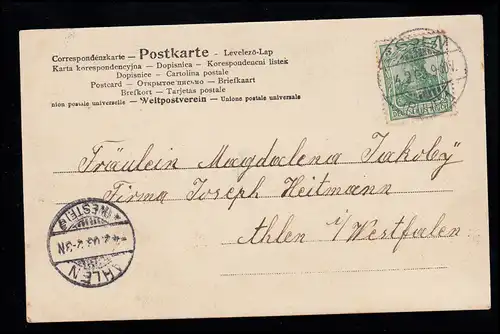 Correspondenzkarte — Postkarte — Levelező-Lap
Karta korespondencyjna – Dopisnica – Korespondenční listek
Dopisnice – Cartolina postale
Postcard – Открытое письмо – Briefkaart
Brefkort – Tarjetas postal
nion postale universelle – Weltpostverein – Unione postale universale
Fräulein Magdalena Jakoby
Firma Joseph Heitmann
Ahlen i/Westfalen
AHLEN
(WESTF.)